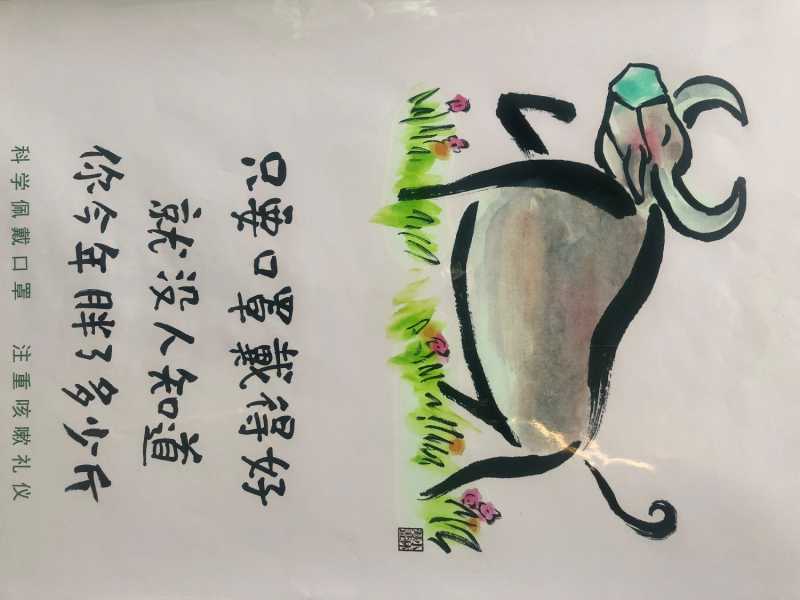 只要口罩戴得好
就没人知道
你今年胖了多少斤
科学佩戴口罩 注重咳嗽礼仪